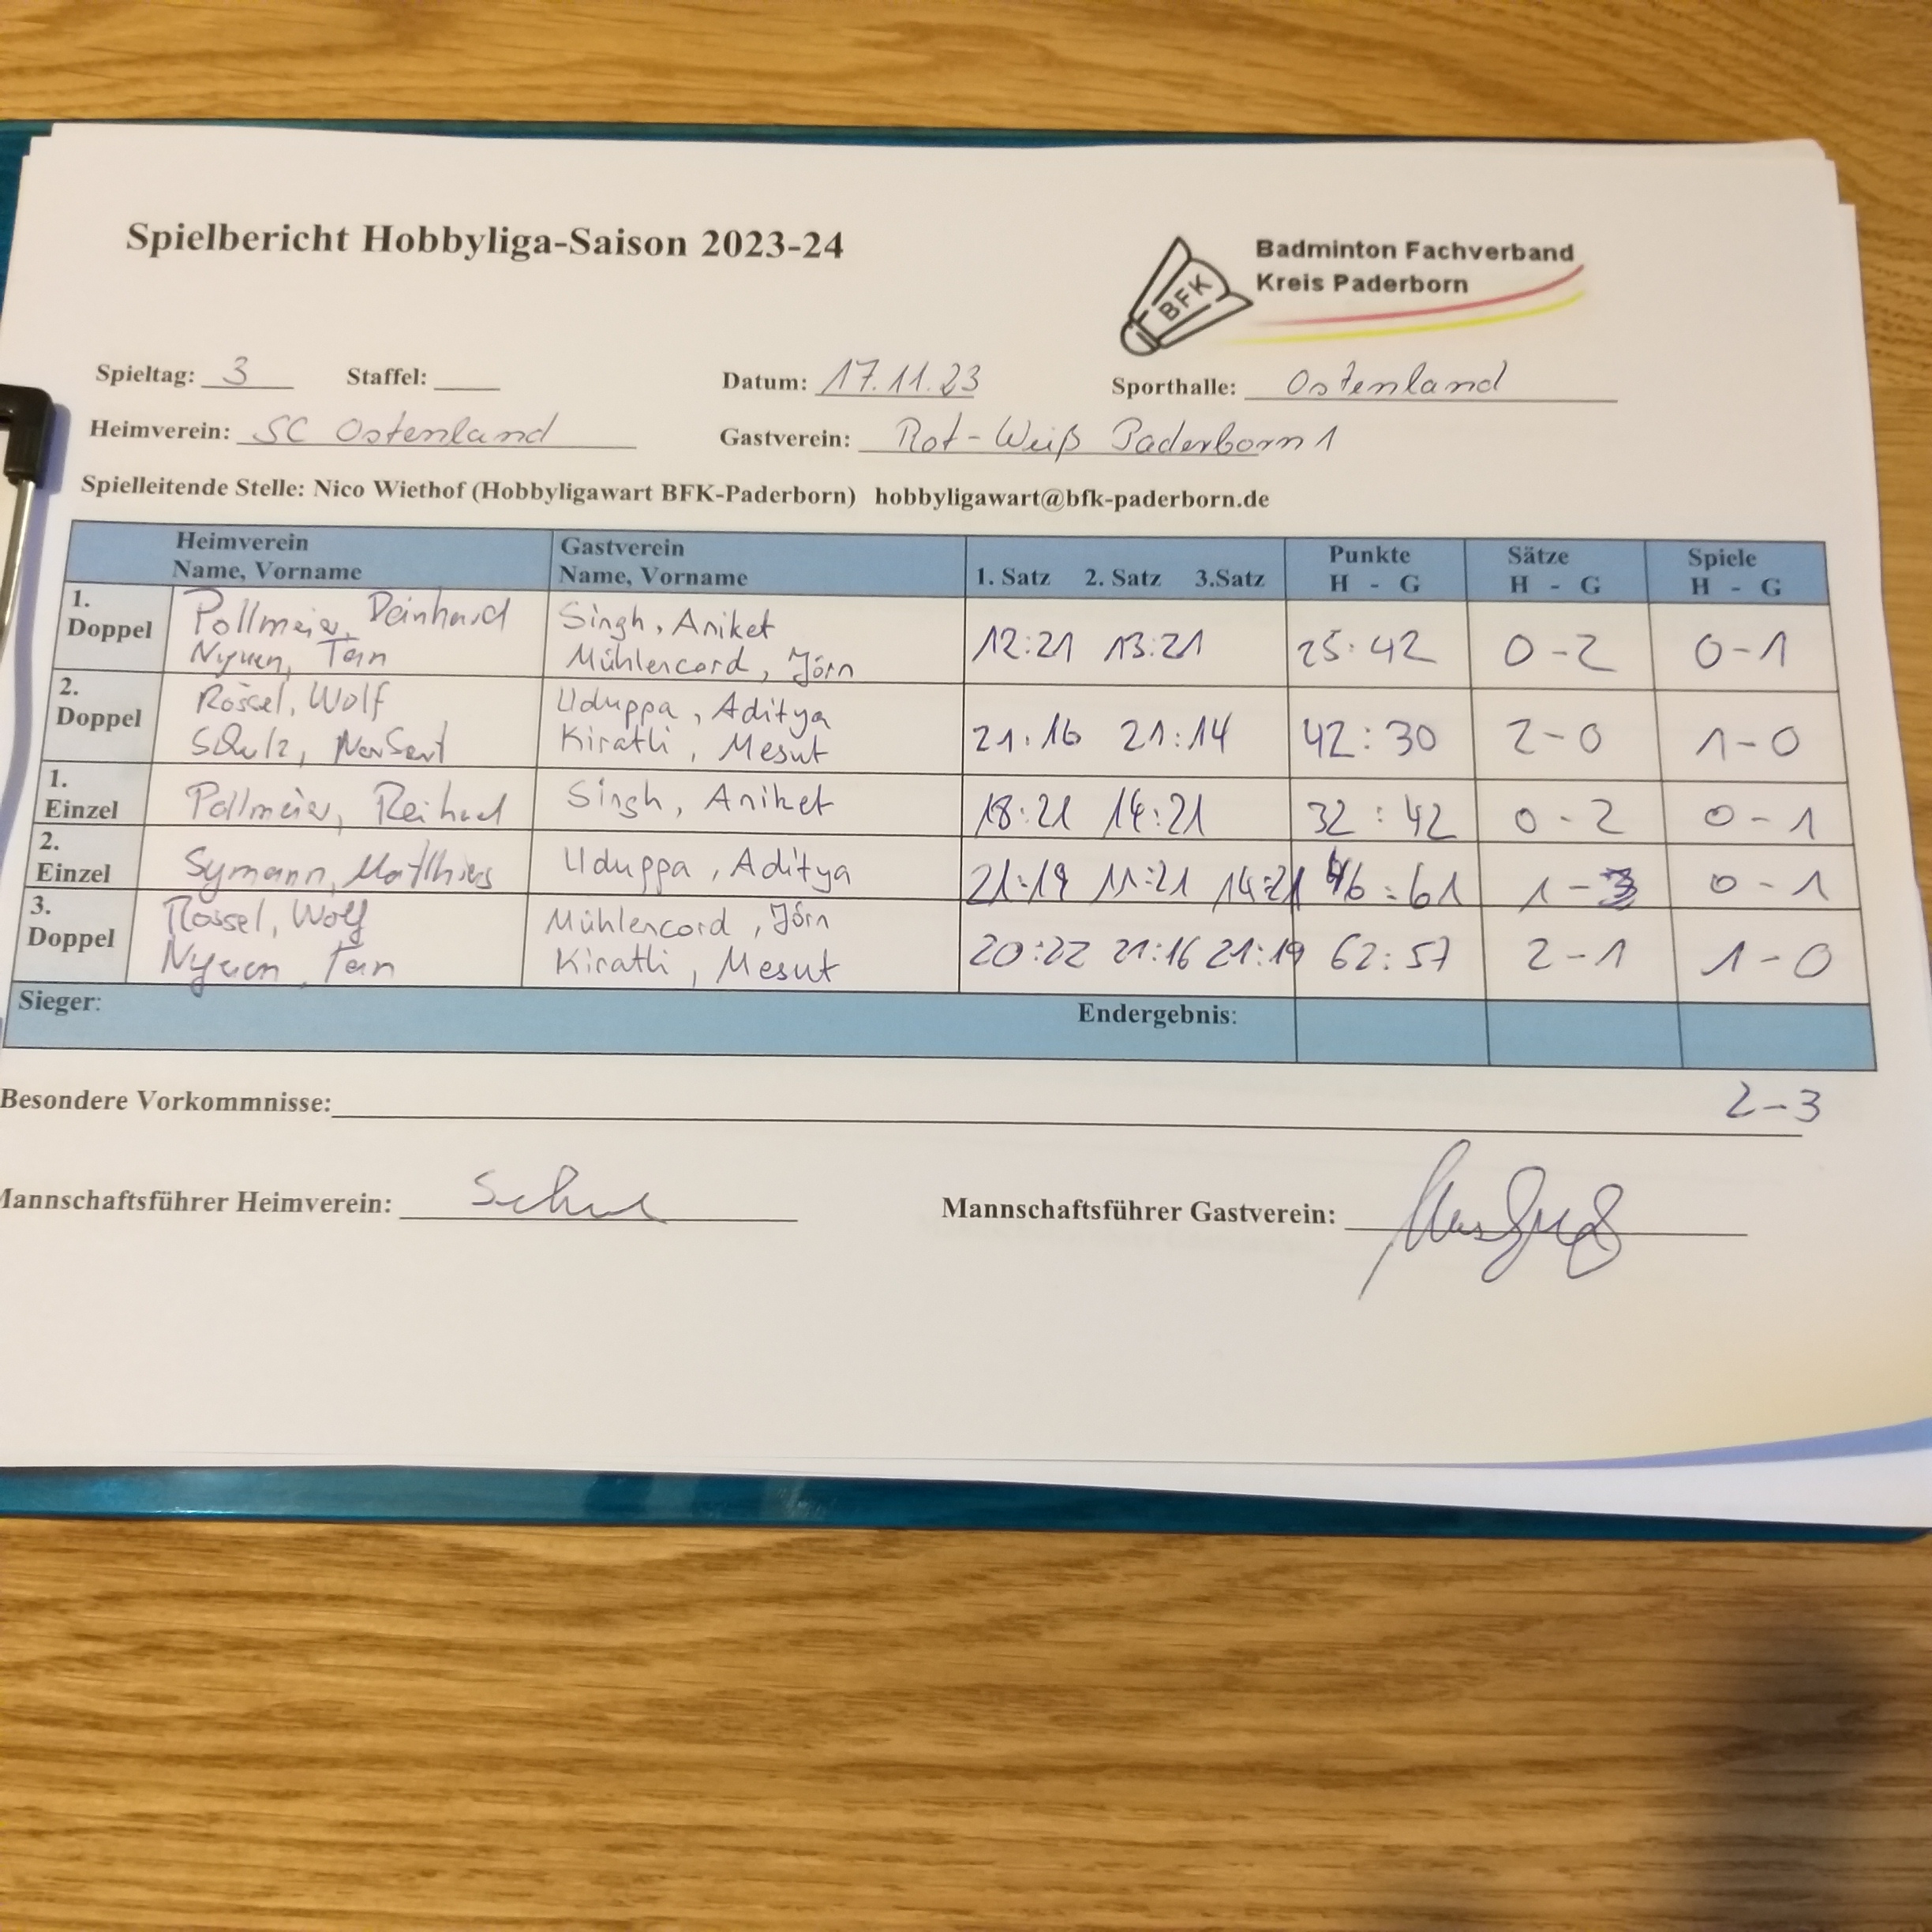 Spielbericht Hobbyliga-Saison 2023-24
Badminton Fachverband
Kreis Paderborn
BFK
Spieltag: 3 Staffel: Datum: 17.11.23 Sporthalle: Ostenland
Heimverein: SC Ostenland Gastverein: Rot-Weiß Paderborn 1
Spielleitende Stelle: Nico Wiethof (Hobbyligawart BFK-Paderborn) hobbyligawart@bfk-paderborn.de
Heimverein Gastverein Punkte Sätze Spiele
Name, Vorname Name, Vorname 1. Satz 2. Satz 3.Satz H - G H - G H - G
1. Doppel Pollmeier, Reinhard Singh, Aniket 12:21 13:21 25:42 0-2 0-1
Nyuen, Tan Mühlencord, Jörn
2. Doppel Rössel, Wolf Uduppa, Aditya 21:16 21:14 42:30 2-0 1-0
Schulz, Norbert Kiratli, Mesut
1. Einzel Pollmeier, Reihard Singh, Aniket 18:21 14:21 32:42 0-2 0-1
2. Einzel Symann, Matthias Uduppa, Aditya 21:19 11:21 14:21 46:61 1- 0-1
3. Doppel Rossel, Wolf Mühlencord, Jörn 20:22 21:16 21:19 62:57 2-1 1-0
Nyuen, Tan Kiratli, Mesut
Sieger: Endergebnis:
2-3
Besondere Vorkommnisse:
Mannschaftsführer Heimverein: Mannschaftsführer Gastverein: